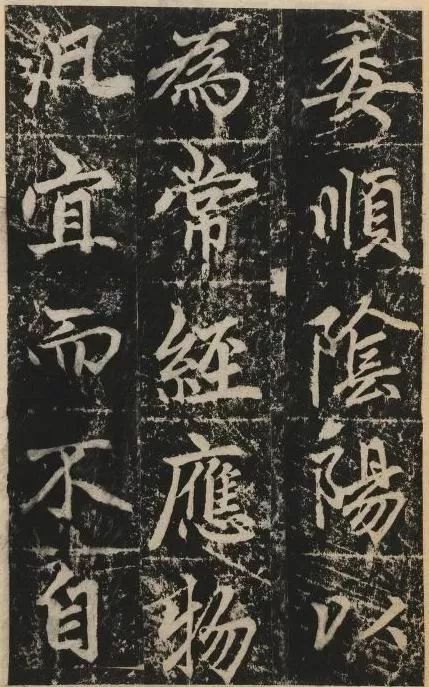 委順陰陽以
為常經應物
汎宜而不自